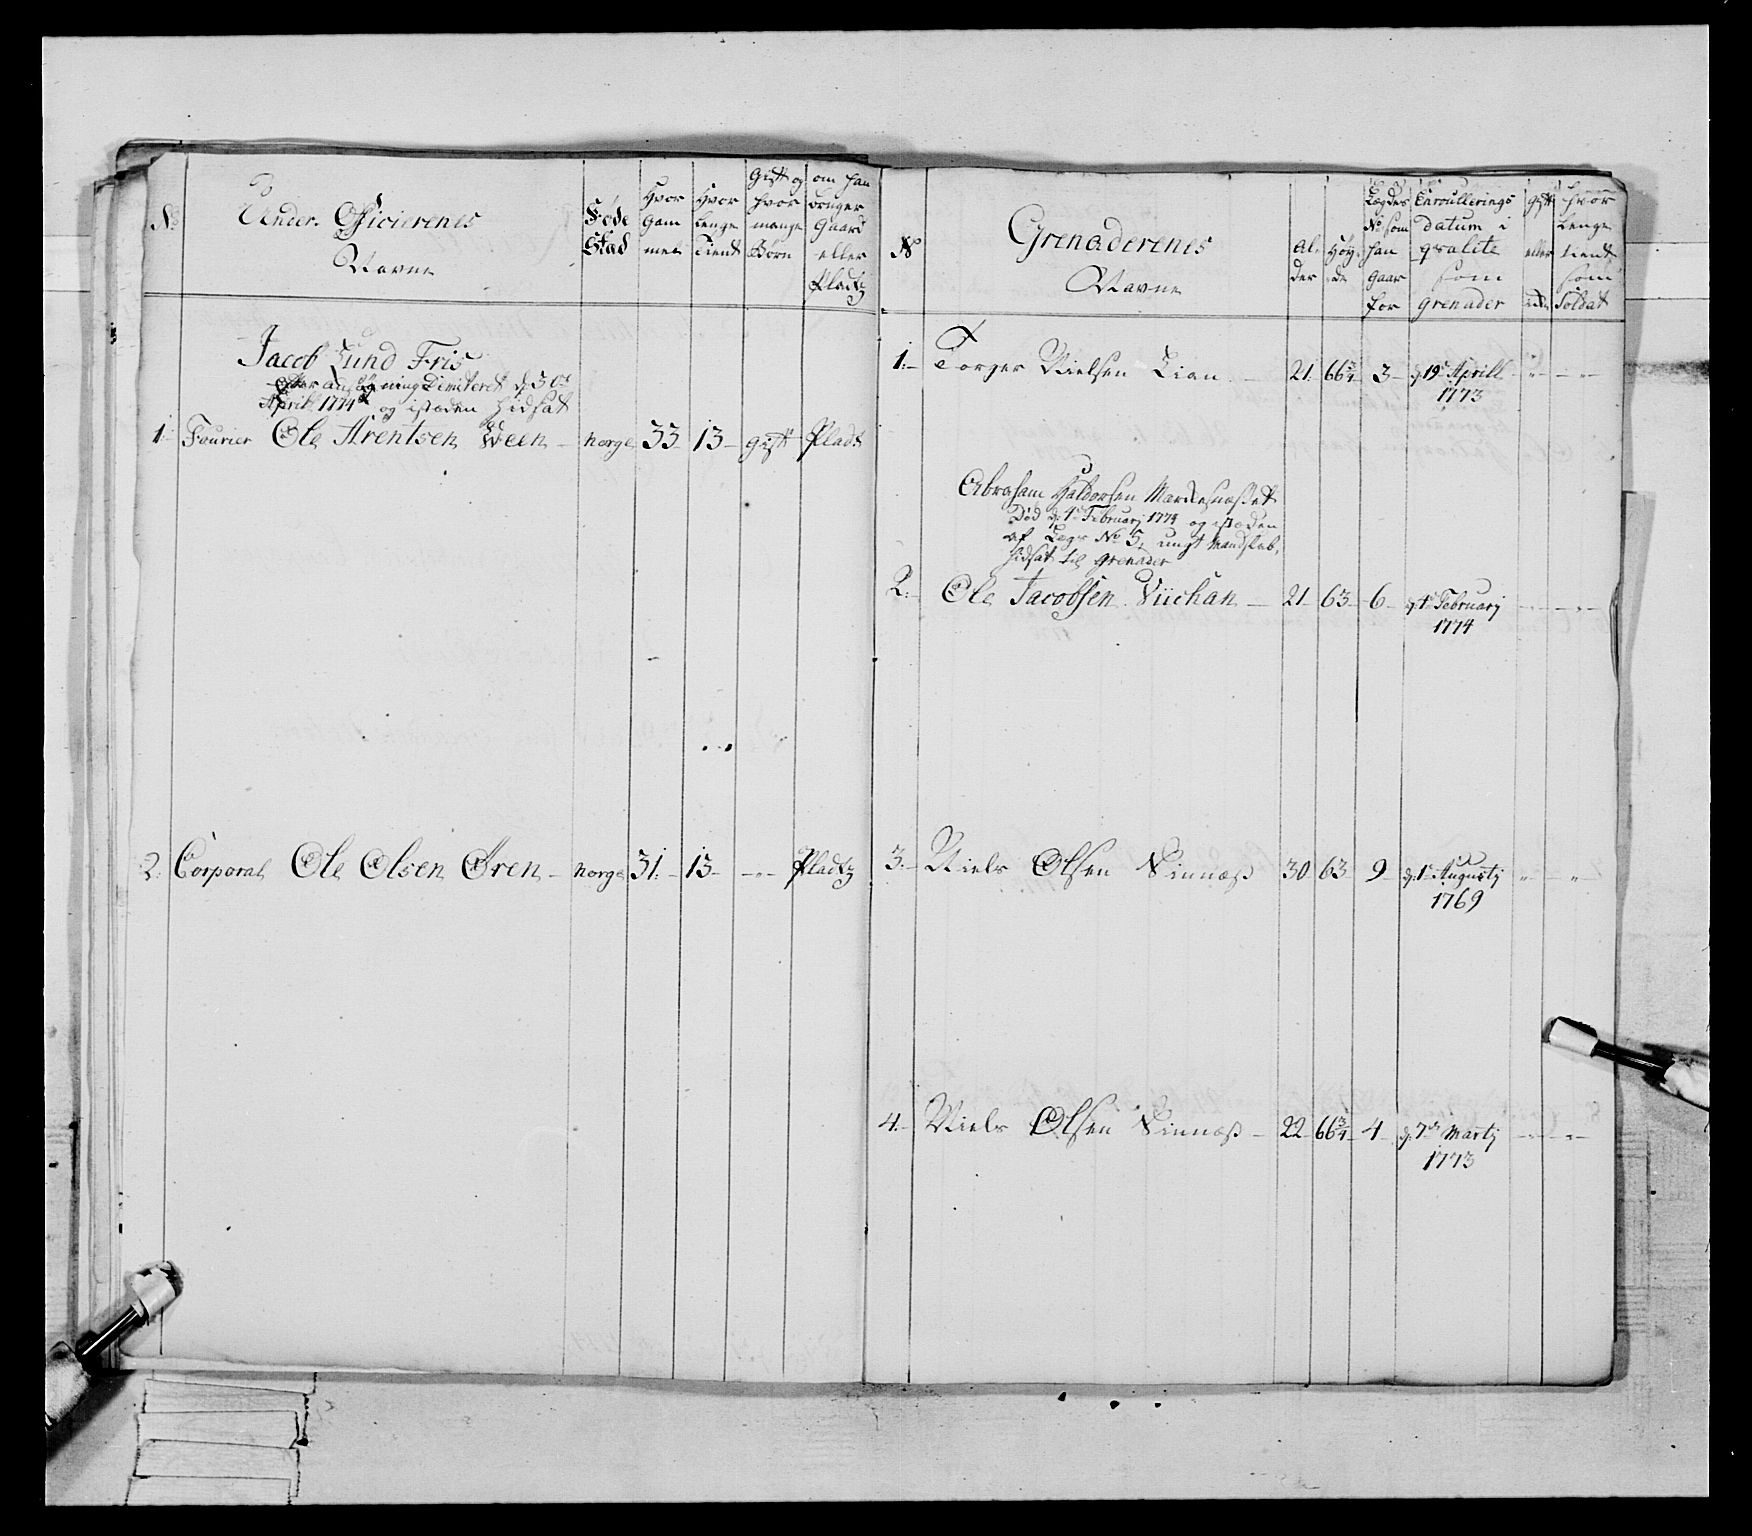 No
Under. Officierenes
Navne
Føde
Stad
Hvor
Gam
mel
Hvor
Lenge
Tient
Gift og
hvor
mange
Børn
om han
bruger
Gaard
eller
Pladtz
Jacob Lund Friis
efter ansøgning Dimiteret d 30t
April 1774 og isteden hidsat
1. Fourier Ole Arentsen Ween - Norge 33 13 - gift Pladt
2. Corporal Ole Olsen Øren - Norge 31. - 13 - - " - Pladtz
No
Grenaderenes
Navne
Al-
der
Høy-
de
Lægdes
No som
han
gaar
for
Enroullerings
datum i
qvalite
som
grenader
gift
eller
hvor
Lenge
tient
som
Soldat
1. - Torger Nielsen Lien - 21. 66¾ 3 - d 19t Aprill - " - - " -
1773
Abraham Haldorsen
Død d 1t Februarj 1774 og isteden
af Lægd No 5, ungt Mandskab,
hidsat til grenader
2. - Ole Jacobsen - 21. 63 - 6 - d 1t Februarj - " - - " -
1774
3. - Niels Olsen Sinnæss 30 63 9 - d 1t Augustj " - "
1769
4. - Niels Olsen Sinnæss - 22 66¾ - 4 - d 7de Martj - " - - " -
1773